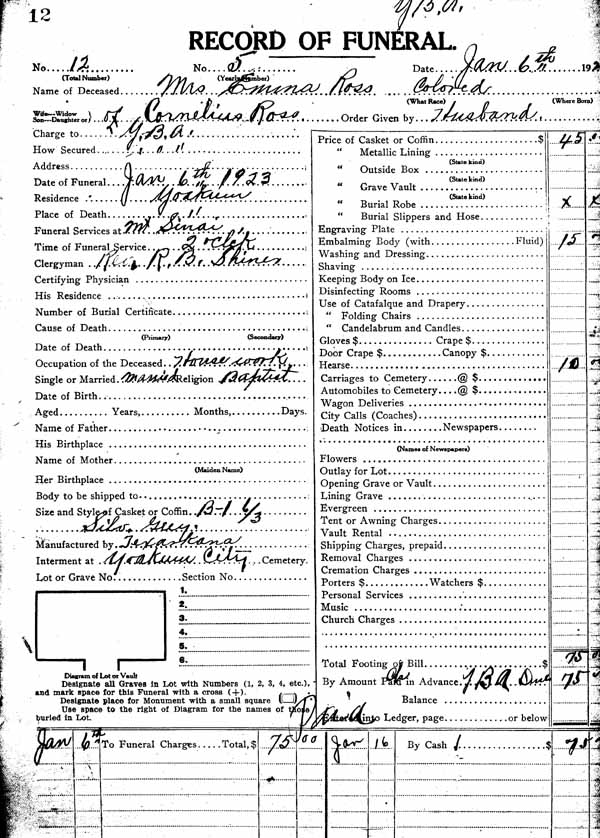 12
Y.B.A.
RECORD OF FUNERAL.
No. 12 No. 5 Date Jan 6th 192
(Total Number) (Yearly Number)
Name of Deceased Mrs Emma Ross Colored
(What Race) (Where Born)
Wife—Widow
Son—Daughter or) of Cornelius Ross Order Given by Husband.
Charge to Y.B.A.
How Secured " " "
Address
Date of Funeral Jan 6th 1923
Residence " Yoakum
Place of Death " "
Funeral Services at Mt Sinai
Time of Funeral Service 2 o'clck
Clergyman Rev. R. B. Shiner
Certifying Physician
His Residence
Number of Burial Certificate
Cause of Death
(Primary) (Secondary)
Date of Death
Occupation of the Deceased House work
Single or Married Married Religion Baptist
Date of Birth
Aged Years, Months, Days.
Name of Father
His Birthplace
Name of Mother
(Maiden Name)
Her Birthplace
Body to be shipped to
Size and Style of Casket or Coffin B-1 6/3
Silv. Grey.
Manufactured by Texarkana
Interment at Yoakum City Cemetery.
Lot or Grave No. Section No.
1.
2.
3.
4.
5.
6.
Diagram of Lot or Vault
Designate all Graves in Lot with Numbers (1, 2, 3, 4, etc.), and mark space for this Funeral with a cross (+).
Designate place for Monument with a small square
Use space to the right of Diagram for the names of those buried in Lot.
Price of Casket or Coffin $ 45
" Metallic Lining
(State kind)
" Outside Box
(State kind)
" Grave Vault
(State kind)
" Burial Robe x x
" Burial Slippers and Hose
Engraving Plate
Embalming Body (with Fluid) 15
Washing and Dressing
Shaving
Keeping Body on Ice
Disinfecting Rooms
Use of Catafalque and Drapery
" Folding Chairs
" Candelabrum and Candles
Gloves $ Crape $
Door Crape $ Canopy $
Hearse 10
Carriages to Cemetery @ $
Automobiles to Cemetery @ $
Wagon Deliveries
City Calls (Coaches)
Death Notices in Newspapers
(Names of Newspapers)
Flowers
Outlay for Lot
Opening Grave or Vault
Lining Grave
Evergreen
Tent or Awning Charges
Vault Rental
Shipping Charges, prepaid
Removal Charges
Cremation Charges
Porters $ Watchers $
Personal Services
Music
Church Charges
Total Footing of Bill $ 75
By Amount Paid in Advance Y.B.A. Due 75
Balance
Paid
Entered into Ledger, page or below
Jan 6th To Funeral Charges Total, $ 75 00 Jan 16 By Cash $ 75